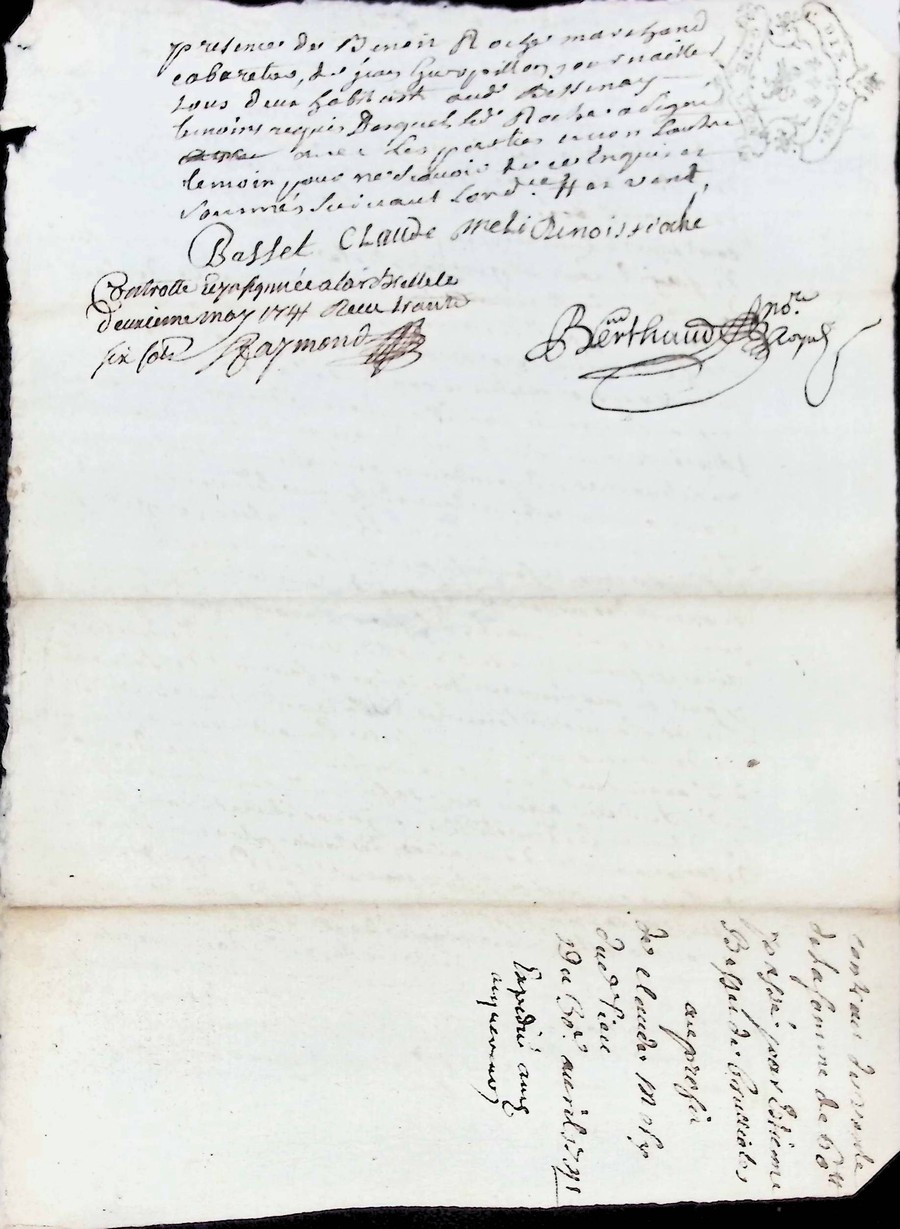 presence de Benoit Roche marchand
cabaretier, & jean
tous deux habitant aud. Bessenay
temoins requis Desquels led. Roche a signé
avec les parties et non l'autre
temoin pour ne scavoir de ce Enquis et
sommés suivant lord.ce
Basset Claude Meli Benoist roche
Controllé
deuxieme may 1741 Receu trante
six sols Raymond
Berthaud no.re Royal
contrat de
de la somme de 60 lt
passé par Estienne
Basset de
au profit
de claude Mely
dud. lieu
Du 30.e avril 1741
Expedié aud.
acquereur